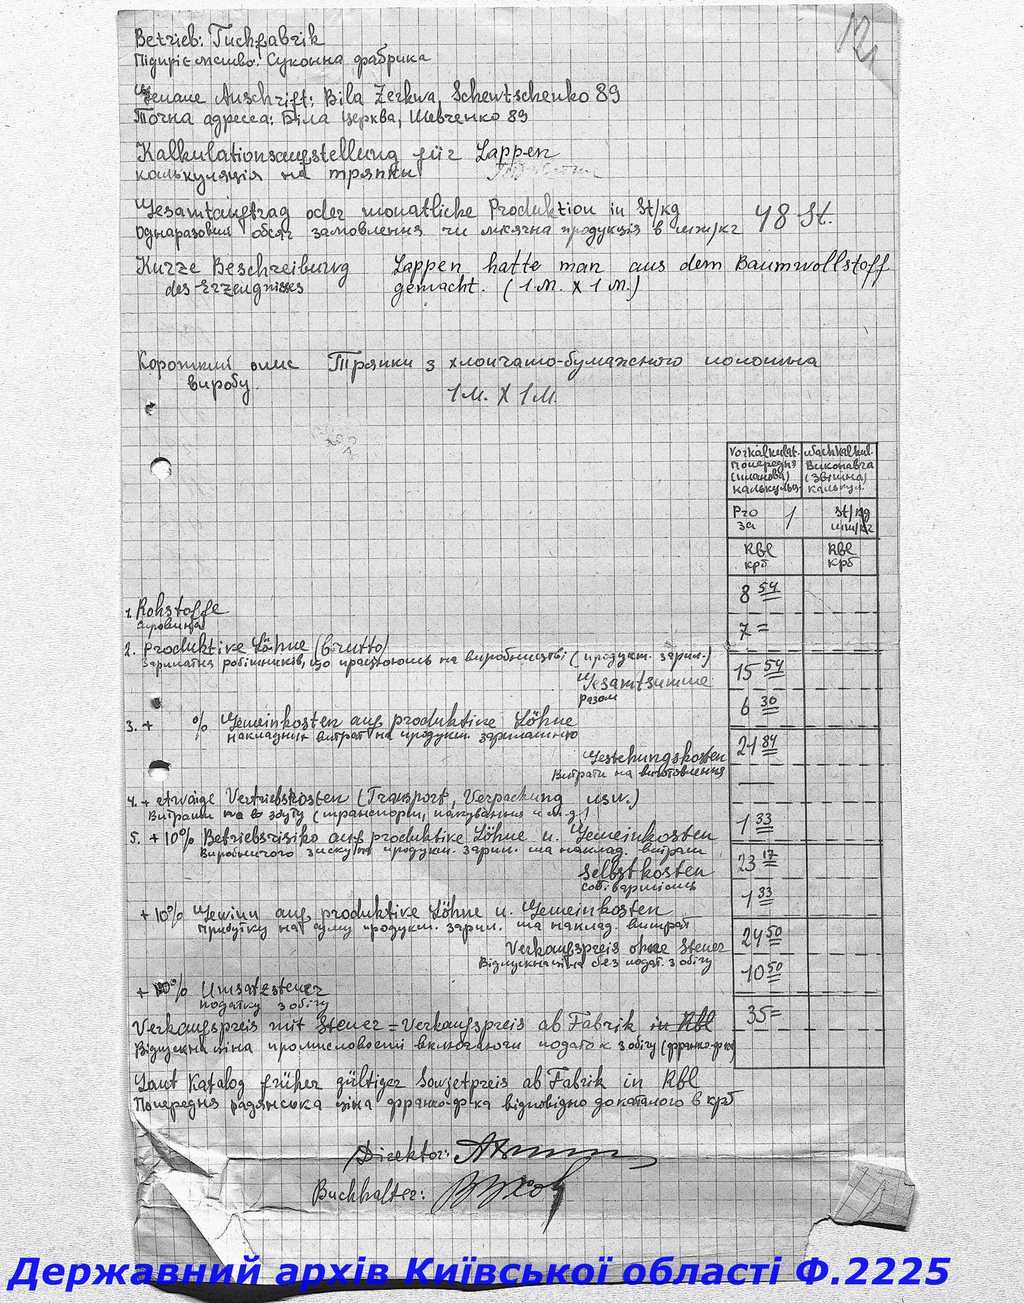 Betrieb: Tuchfabrik
Підприємство: Суконна фабрика
Genaue Anschrift: Bila Zerkwa, Schewtschenko 89
Точна адресса: Біла Церква, Шевченко 89
Kalkulationsaufstellung für Lappen
калькуляція на тряпки
Gesamtauftrag oder monatliche Produktion in St/kg 48 St.
Одноразовий обсяг замовлення чи місячна продукція в шт/кг
Kurze Beschreibung Lappen hatte man aus dem Baumwollstoff
des Erzeugnisses gemacht. (1 м. x 1 м.)
Короткий опис Тряпки з хлопчато-бумажного полотна
виробу. 1 м. X 1 м.
Vorkalkulat. Nachkalkul.
Попередня Виконавча
(планова) (звітна)
калькуляц. калькул.
Pro 1 St/kg
за шт/кг
Rbl Rbl
крб крб
8 54
1. Rohstoffe
сировина
7 =
2. Produktive Löhne (brutto)
Зарплатня робітників, що працюють на виробництві (продукт. зарпл.)
Gesamtsumme 15 54
разом
6 30
3. + % Gemeinkosten auf produktive Löhne
накладних витрат на продукт. зарплатню
Gestehungskosten 21 84
Витрати на виготовлення
4. + etwaige Vertriebskosten (Transport, Verpackung usw.)
Витрати по збуту (транспорт, пакування и т.д.)
1 33
5. + 10% Betriebsrisiko auf produktive Löhne u. Gemeinkosten
Виробничого зиску на продукт. зарпл. та наклад. витрати
Selbstkosten 23 17
собівартість
1 33
+ 10% Gewinn auf produktive Löhne u. Gemeinkosten
Прибутку на суму продукт. зарпл. та наклад. витрат
Verkaufspreis ohne Steuer 24 50
Відпускна ціна без подат. з обігу
10 50
+ % Umsatzsteuer
податку з обігу
35 =
Verkaufspreis mit Steuer = Verkaufspreis ab Fabrik in Rbl
Відпускна ціна промисловості включаючи податок з обігу (франко-ф-ка)
Laut Katalog früher gültiger Sowjetpreis ab Fabrik in Rbl
Попередня радянська ціна франко-ф-ка відповідно до каталогу в крб
Direktor:
Buchhalter:
Державний архів Київської області Ф.2225